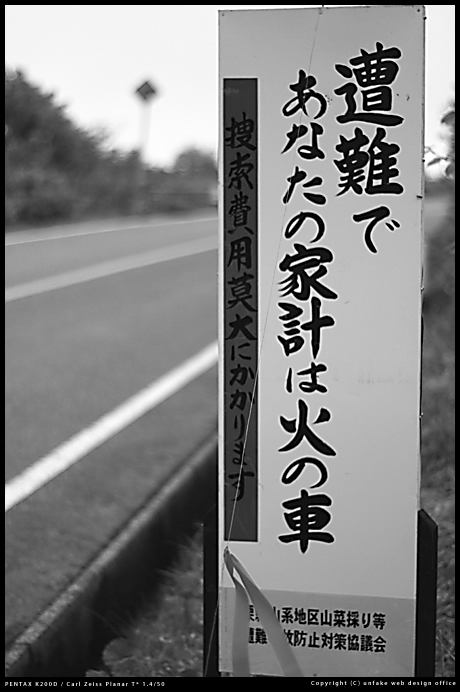 遭難で
あなたの家計は火の車
捜索費用莫大にかかります
山系地区山菜採り等
遭難 故防止対策協議会
PENTAX K200D / Carl Zeiss Planar T* 1.4/50
Copyright (C) unfake web design office